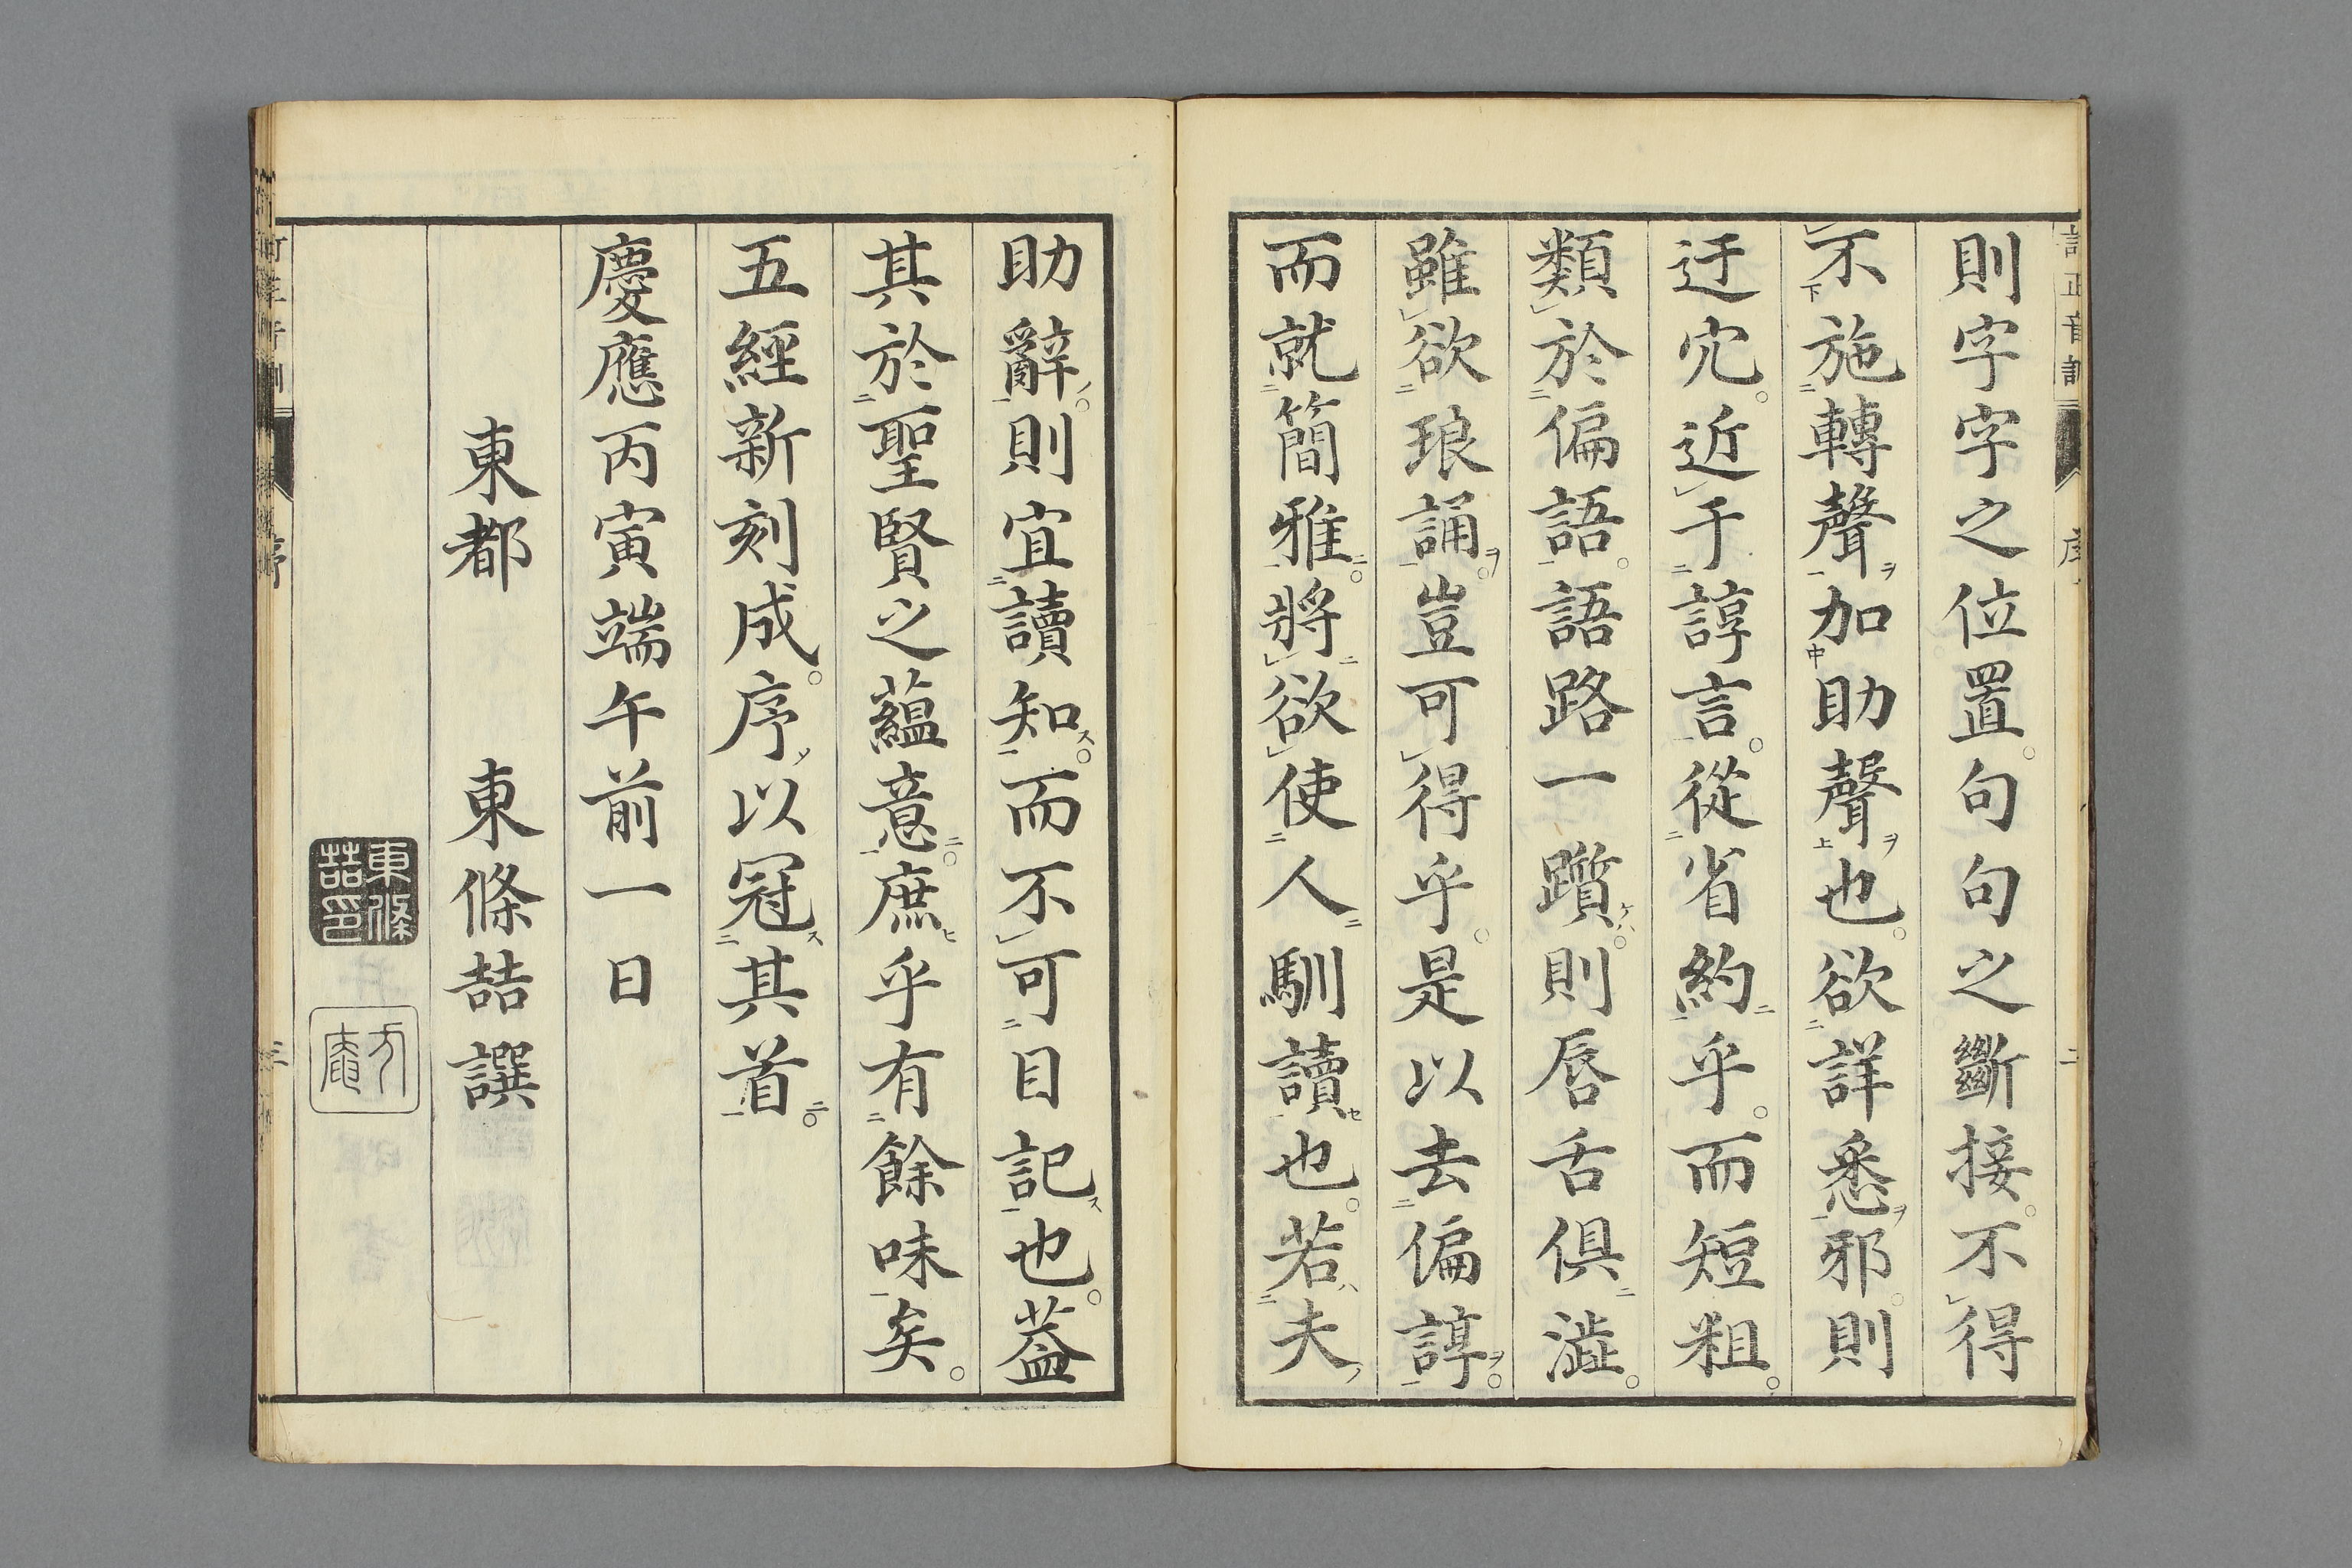 訂正音訓 序 二
則字字之位置。句句之斷接。不得
不施轉聲加助聲也。欲詳悉邪。則
迂宂。近于諄言。從省約乎。而短粗。
類於偏語。語路一躓。則唇舌俱澁。
雖欲琅誦。豈可得乎。是以去偏諄。
而就簡雅。將欲使人馴讀也。若夫
助辭。則宜讀知。而不可目記也。葢
其於聖賢之蘊意。庶乎有餘味矣。
五經新刻成。序以冠其首。
慶應丙寅端午前一日
東都　東條喆譔
東條喆印
方庵
序 三